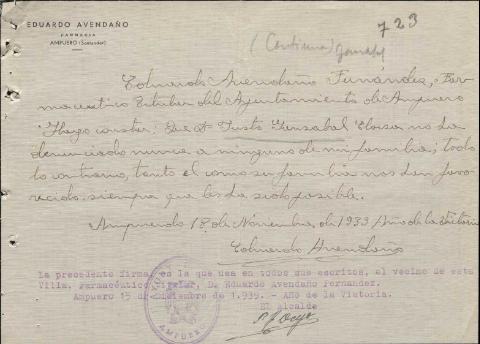 EDUARDO AVENDAÑO
FARMACIA
AMPUERO (Santander)
723
(Continua)
Eduardo Avendaño Fernández, Far-
maceutico Titular del Ayuntamiento de Ampuero
Hago constar: Que D. Justo Elorsa no ha
denunciado nunca a ninguno de mi familia; todo
lo contrario, tanto el como su familia nos han favo-
recido siempre que les ha sido posible.
Ampuero 18 de Noviembre de 1939 Año de la Victoria
Eduardo Avendaño
La precedente firma, es la que usa en todos sus escritos, el vecino de esta
Villa, Farmacéutico Titular, D. Eduardo Avendaño Fernandez.
Ampuero 15 de Diciembre de 1.939.- AÑO de la Victoria.
El Alcalde
AMPUERO